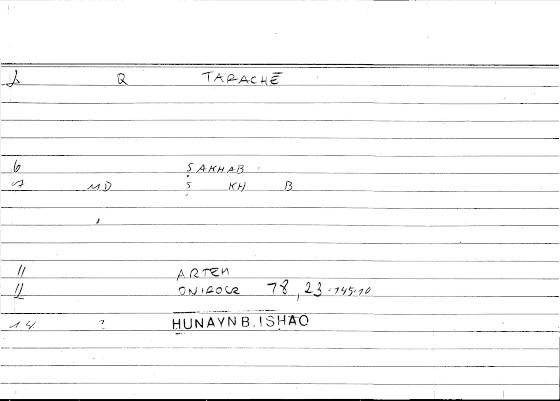 1 Q TARACHĒ
6 ṢAKHAB
7 MD Ṣ KH B
11 ARTEM
12 ONIROCR 78,23-145.10
14 ? HUNAYN B. ISHAQ